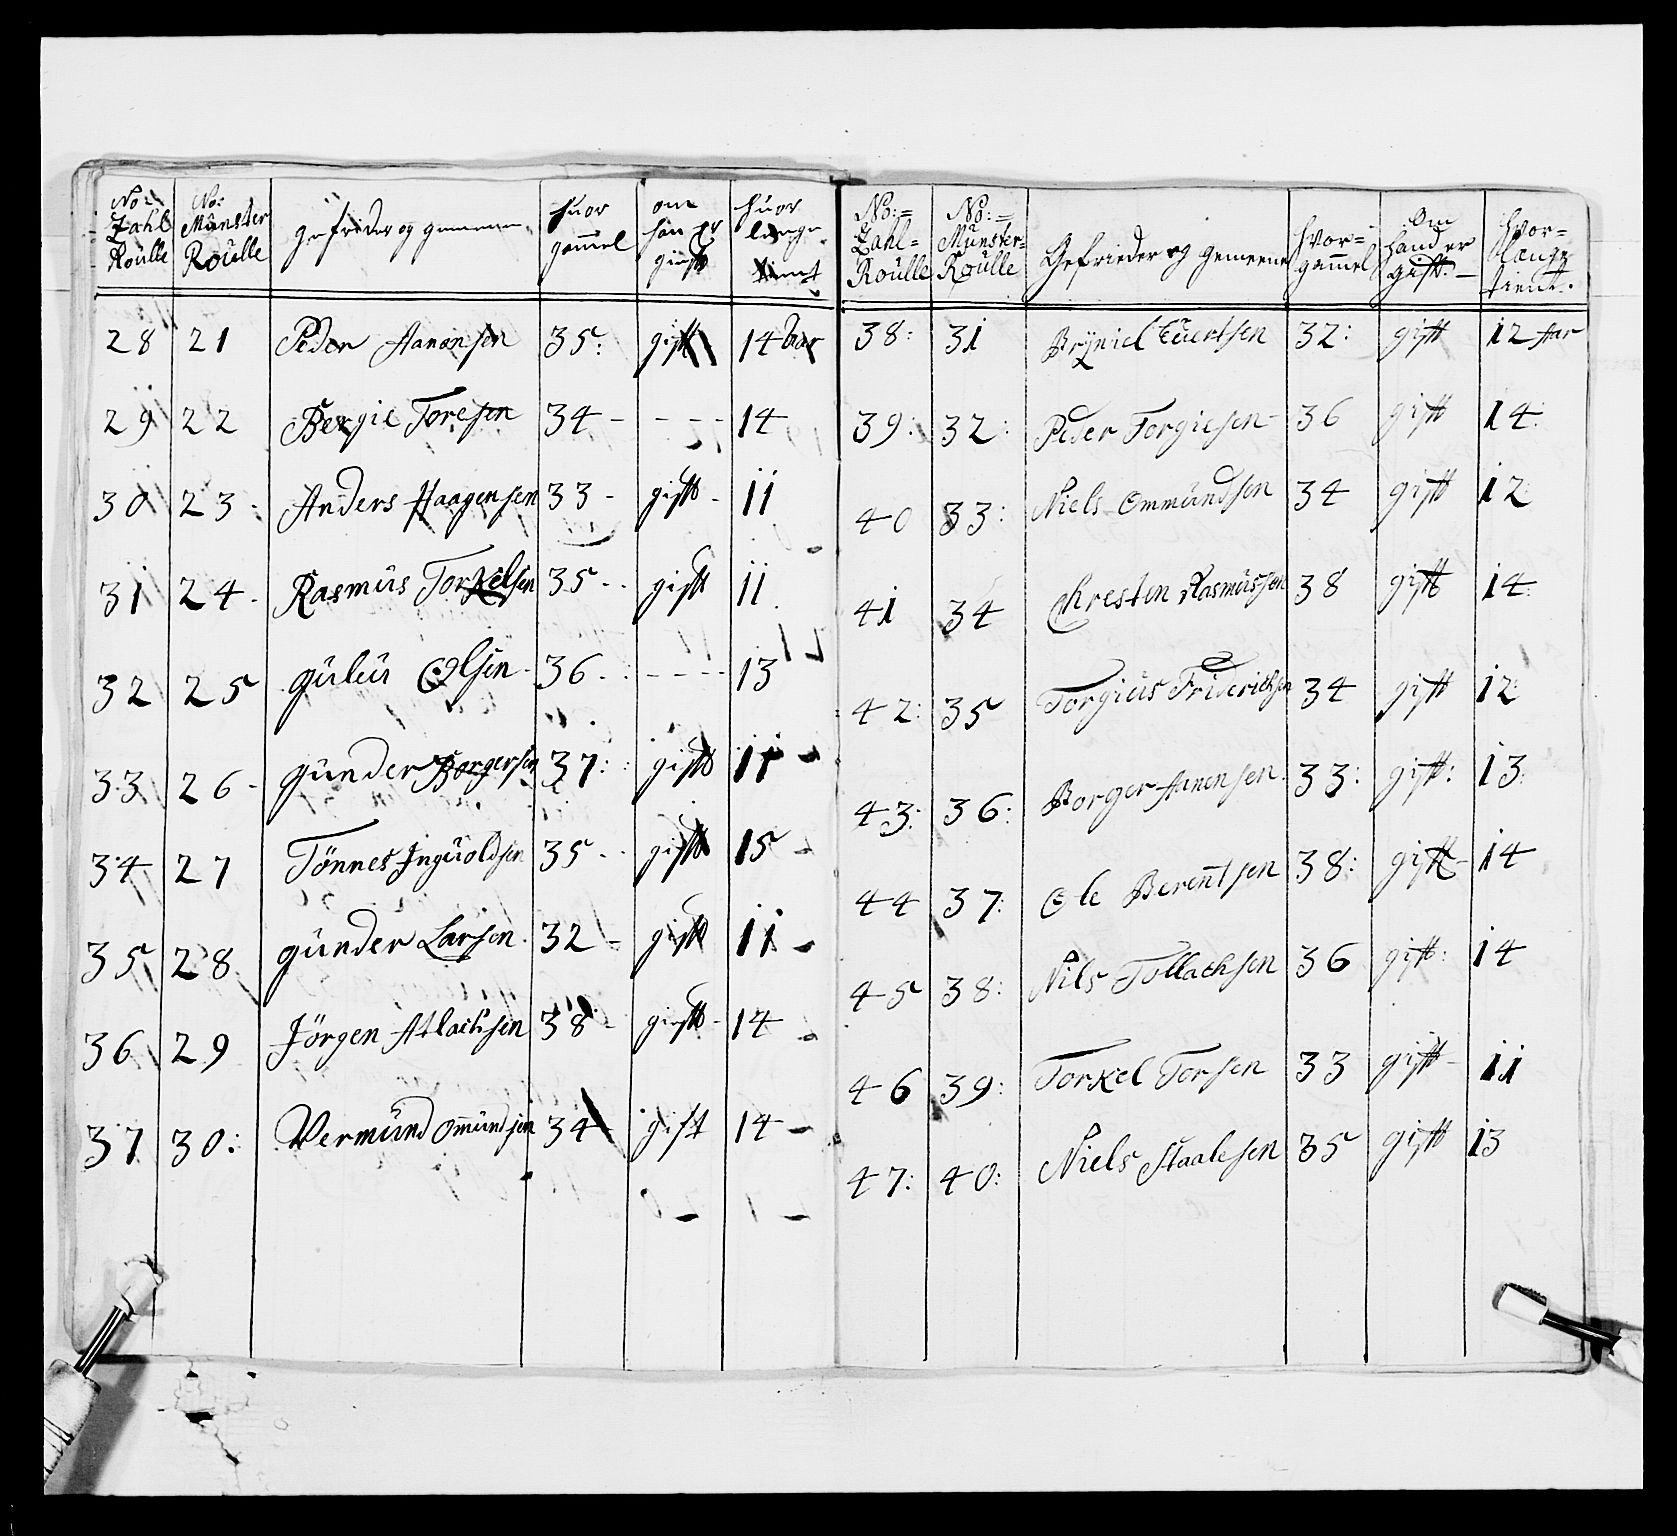 No: Zahl Roulle | No: Münster Roulle | gefrider og gemeene | huor gammel | om han er gift | huor lenge tient
28 21 Peder Aanonsen 35: gift 14 Aar
29 22 Bergie Toresen 34 - - - - 14
30 23: Anders Haagensen 33 - gift - 11
31 24 - Rasmüs Torkelsen 35 - - gift 11
32 25 gülüi Olsen - 36 - - - - - 13
33 26 - günder Borgersen 37: gift 11 -
34 27 Tönnes Ingüoldsen 35 - - gift 15 -
35 28 günder Larsen 32 - gift 11 -
36 29 Jörgen Atlachsen 38 - gift - 14 -
37 30: Vermünd Omündsen 34 gift 14 -
No:= Zahl= Roülle | No:= Münster= Roülle | Gefrieder og gemeene | hvor= gammel | Om hand er gift: - | hvor= länge tient.
38: 31 Brÿniel Eüertsen 32: gift 12 Aar
39: 32: Peder Torgiesen - 36 gift 14:
40 33: Niels Ommündsen 34 gift 12:
41 34 Chresten Rasmüssen 38 gift 14:
42: 35 Torgiüs Friderichsen 34 gift 12:
43: 36: Borger Aanensen 33: gift: 13:
44 37: Ole Berentsen 38: gift - 14
45 38: Nils Tollachsen 36 gift: 14
46 39: Torkel Torsen 33 gift - 11
47: 40: Niels Staalesen 35 gift 13